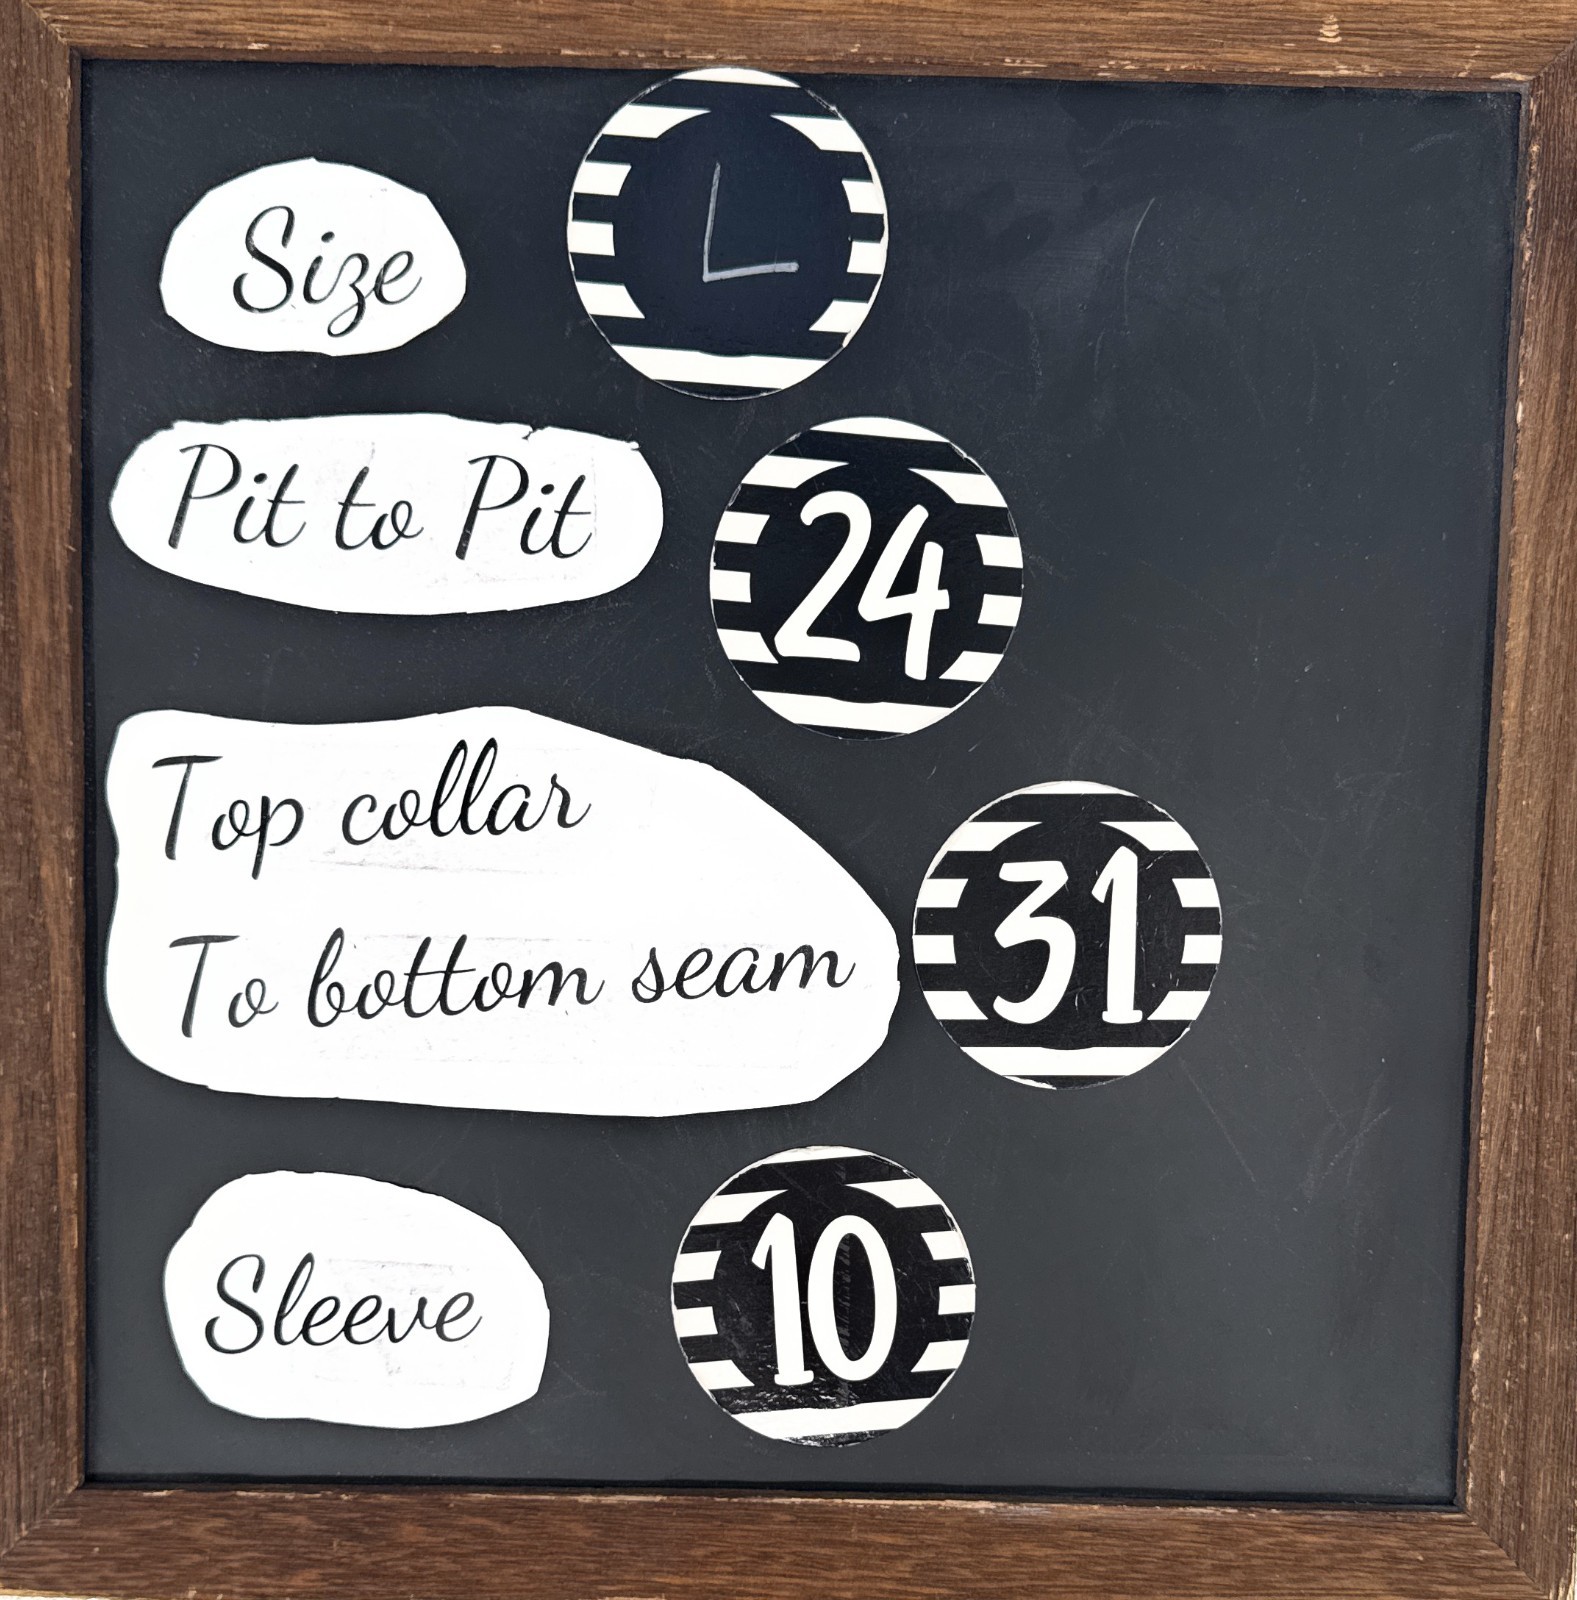 Size L
Pit to Pit 24
Top collar
To bottom seam 31
Sleeve 10